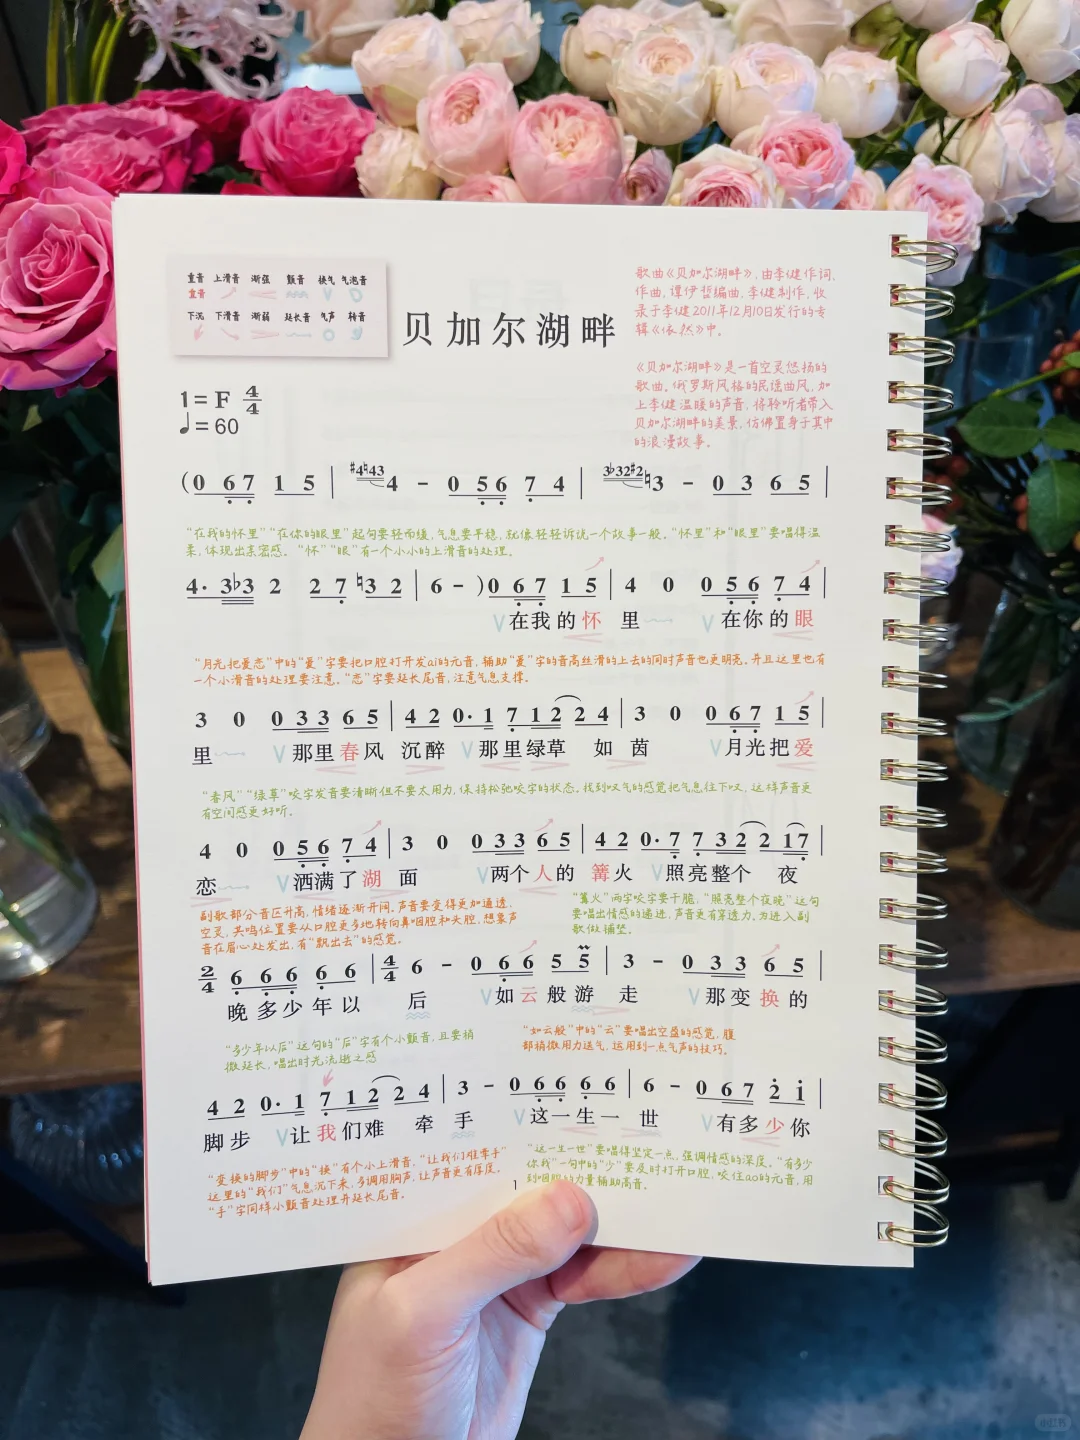 重音 上滑音 渐强 颤音 换气 气泡音
重音
下沉 下滑音 渐弱 延长音 气声 转音
贝加尔湖畔
歌曲《贝加尔湖畔》,由李健作词、
作曲,谭伊哲编曲,李健制作,收
录于李健2011年12月10日发行的专
辑《依然》中。
《贝加尔湖畔》是一首空灵悠扬的
歌曲。俄罗斯风格的民谣曲风,加
上李健温暖的声音,将聆听者带入
贝加尔湖畔的美景,仿佛置身于其中
的浪漫故事。
1=F 4/4
♩=60
(0 67 1 5 | #4♮43 4 - 0 56 7 4 | 3♭32#2 ♮3 - 0 3 6 5 |
“在我的怀里”“在你的眼里”起句要轻而缓,气息要平稳,就像轻轻诉说一个故事一般。“怀里”和“眼里”要唱得温
柔,体现出亲密感。“怀”“眼”有一个小小的上滑音的处理。
4· 3♭3 2 2 7 ♮3 2 | 6 - )0 6 7 1 5 | 4 0 0 5 6 7 4 |
V在我的怀 里 V在你的眼
“月光把爱恋”中的“爱”字要把口腔打开发ai的元音,辅助“爱”字的音高丝滑的上去的同时声音也更明亮。并且这里也有
一个小滑音的处理要注意。“恋”字要延长尾音,注意气息支撑。
3 0 0 3 3 6 5 | 4 2 0· 1 7 1 2 2 4 | 3 0 0 6 7 1 5 |
里 V那里春风 沉醉 V那里绿草 如 茵 V月光把爱
“春风”“绿草”咬字发音要清晰但不要太用力,保持松弛咬字的状态。找到叹气的感觉把气息往下叹,这样声音更
有空间感更好听。
4 0 0 5 6 7 4 | 3 0 0 3 3 6 5 | 4 2 0· 7 7 3 2 2 1 7 |
恋 V洒满了湖 面 V两个人的 篝火 V照亮整个 夜
副歌部分音区升高,情绪逐渐开阔。声音要变得更加通透、
空灵,共鸣位置要从口腔更多地转向鼻咽腔和头腔,想象声
音在眉心处发出,有“飘出去”的感觉。
“篝火”两字咬字要干脆,“照亮整个夜晚”这句
要唱出情感的递进,声音更有穿透力,为进入副
歌做铺垫。
2/4 6 6 6 6 6 | 4/4 6 - 0 6 6 5 5 | 3 - 0 3 3 6 5 |
晚多少年以 后 V如云般游 走 V那变换的
“多少年以后”这句的“后”字有个小颤音,且要稍
微延长,唱出时光流逝之感
“如云般”中的“云”要唱出空盈的感觉,腹
部稍微用力送气,运用到一点气声的技巧。
4 2 0· 1 7 1 2 2 4 | 3 - 0 6 6 6 6 | 6 - 0 6 7 2 1 |
脚步 V让我们难 牵 手 V这一生一 世 V有多少你
“变换的脚步”中的“换”有个小上滑音,“让我们难牵手”
这里的“我们”气息沉下来,多调用胸声,让声音更有厚度。
“手”字同样小颤音处理并延长尾音。
“这一生一世”要唱得坚定一点,强调情感的深度。“有多少
你我”一句中的“少”要及时打开口腔,咬住ao的元音,用
到咽腔的力量辅助高音。
1
小红书